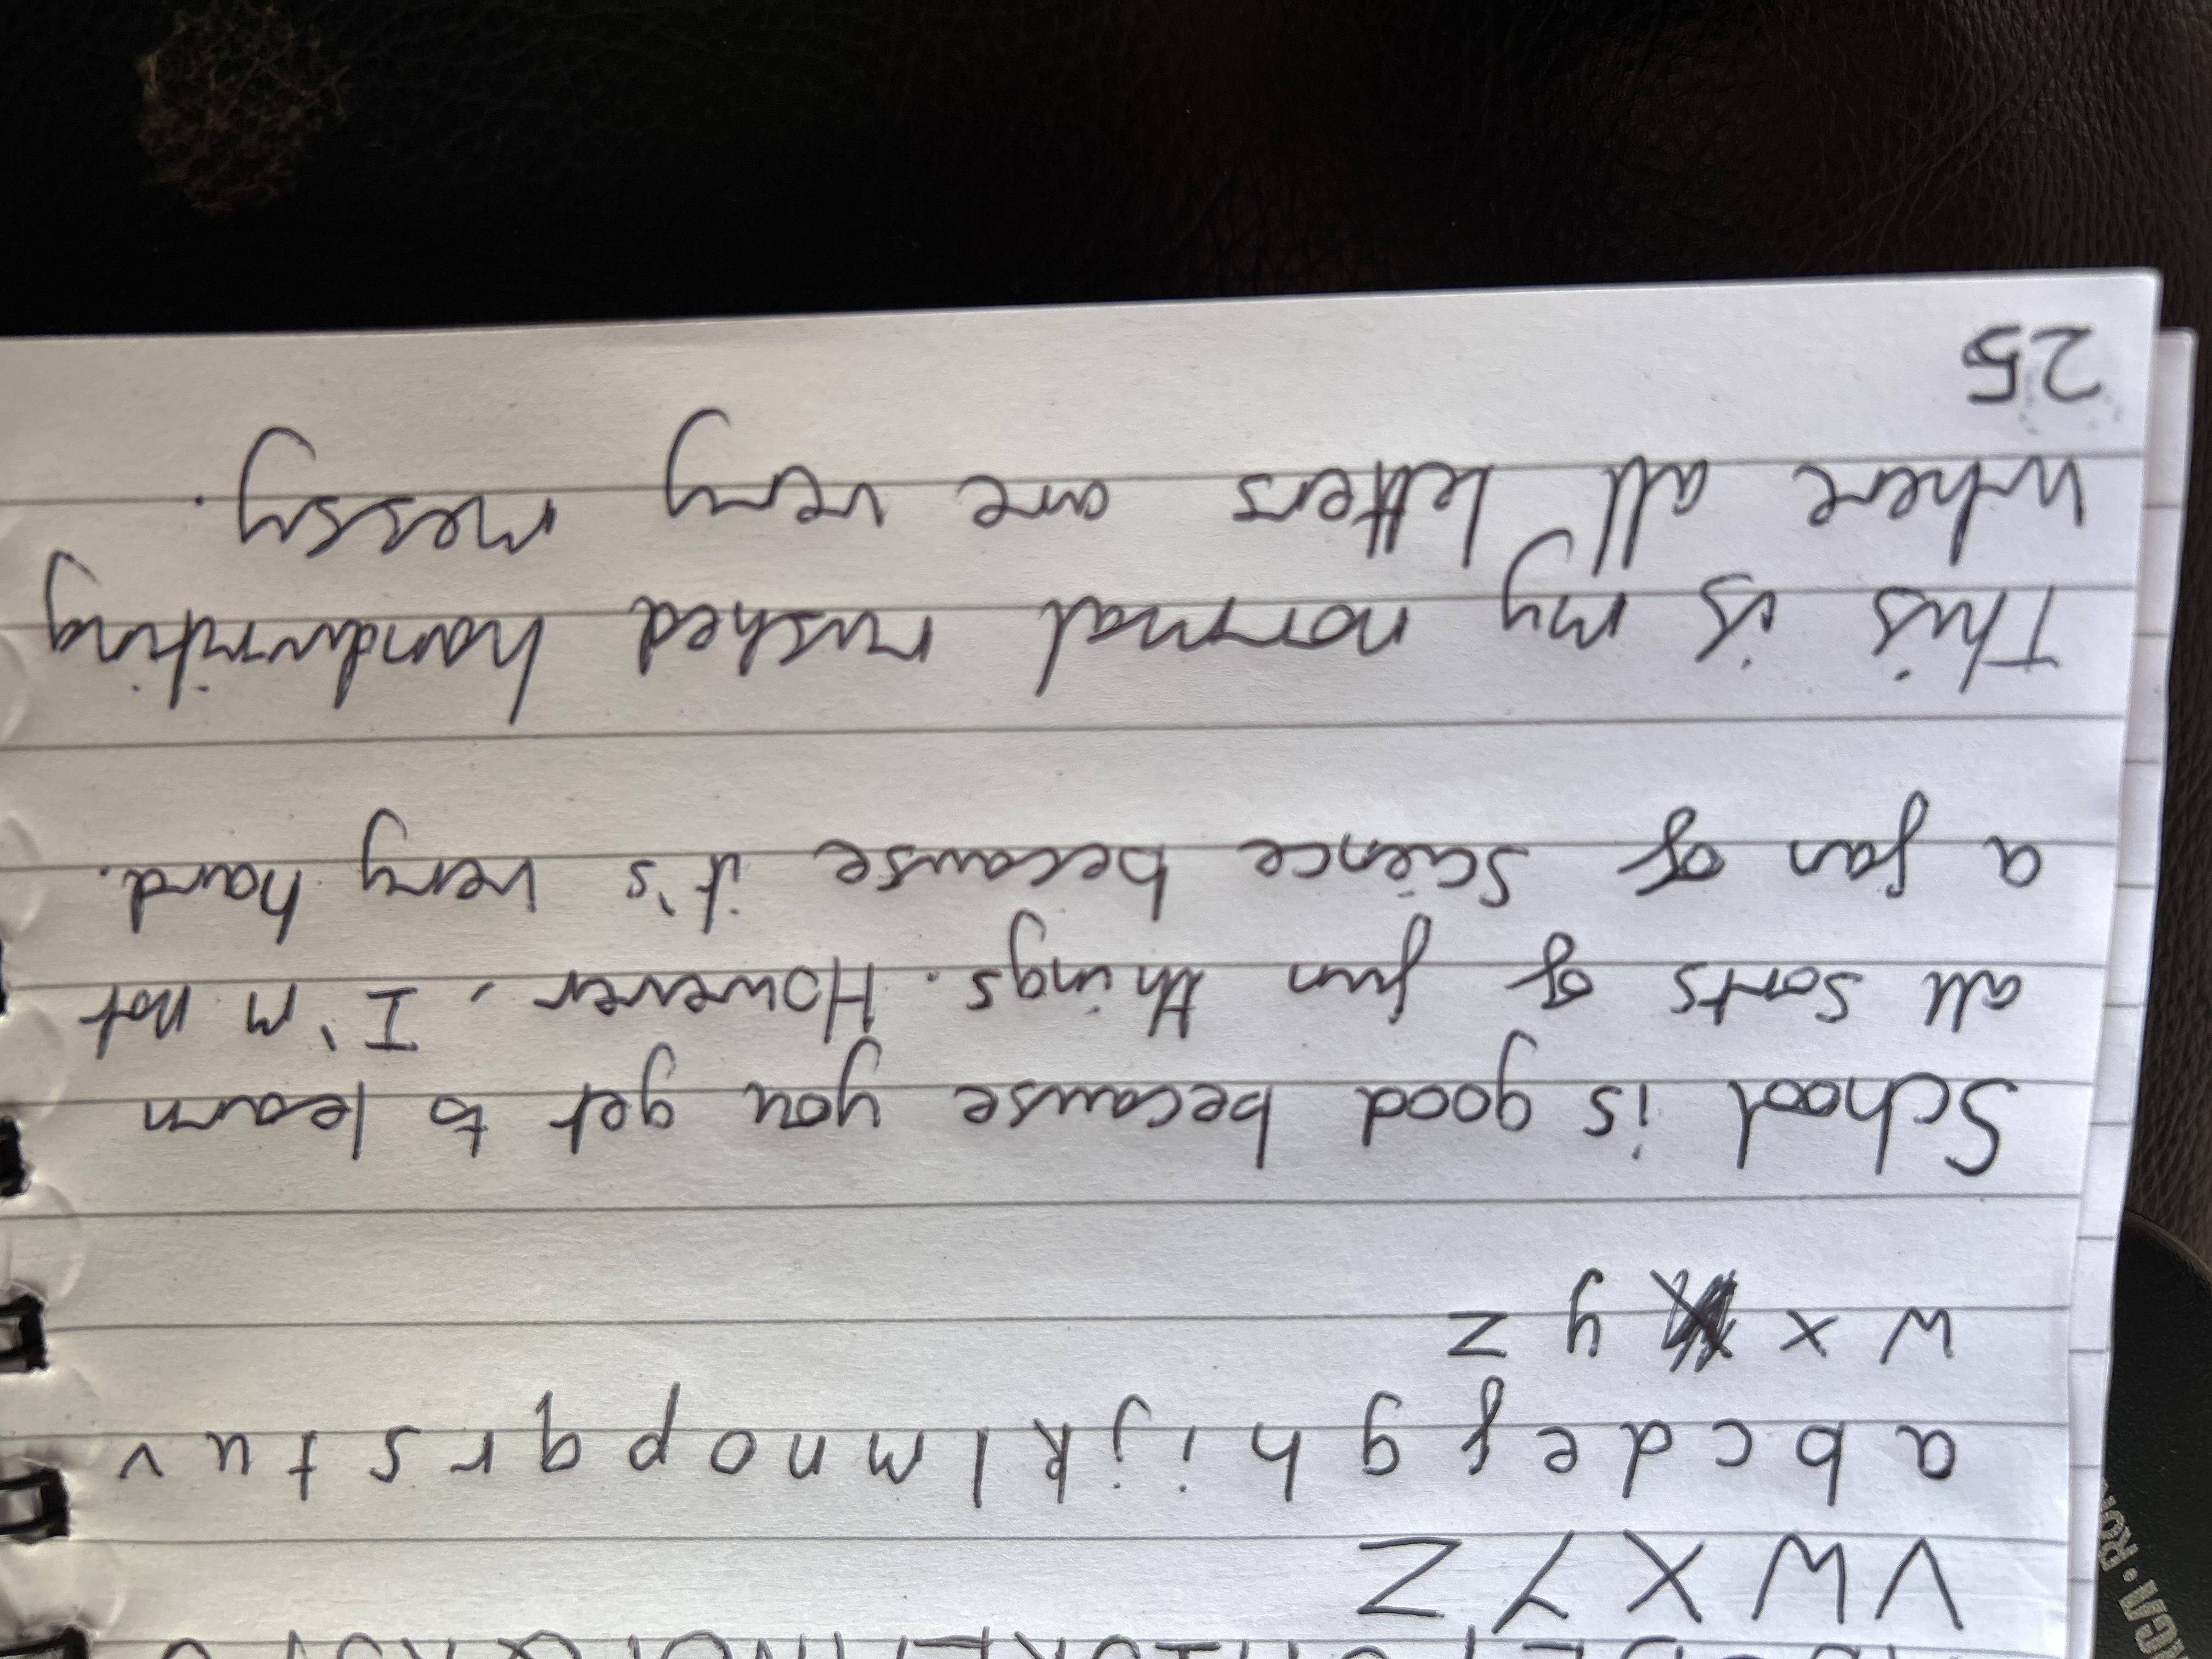 V W X Y Z
a b c d e f g h i j k l m n o p q r s t u v
w x y z
School is good because you get to learn
all sorts of fun things. However, I'm not
a fan of science because it's very hard.
This is my normal rushed handwriting
where all letters are very messy.
25